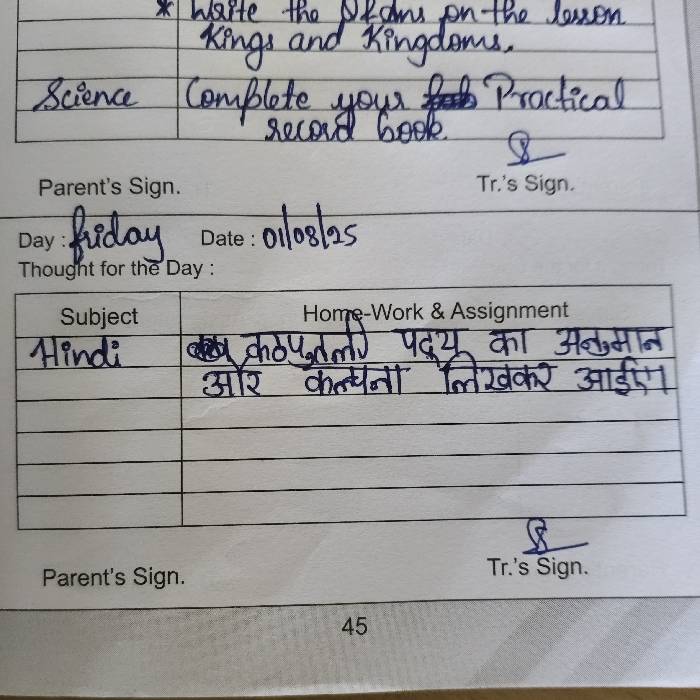 * Write the Q&Ans on the lesson
Kings and Kingdoms.
Science Complete your Practical
record book.
Parent's Sign. Tr.'s Sign.
Day : friday Date : 01/08/25
Thought for the Day :
Subject Home-Work & Assignment
Hindi कठपुतली पद्य का अनुमान
और कल्पना लिखकर आईए।
Parent's Sign. Tr.'s Sign.
45